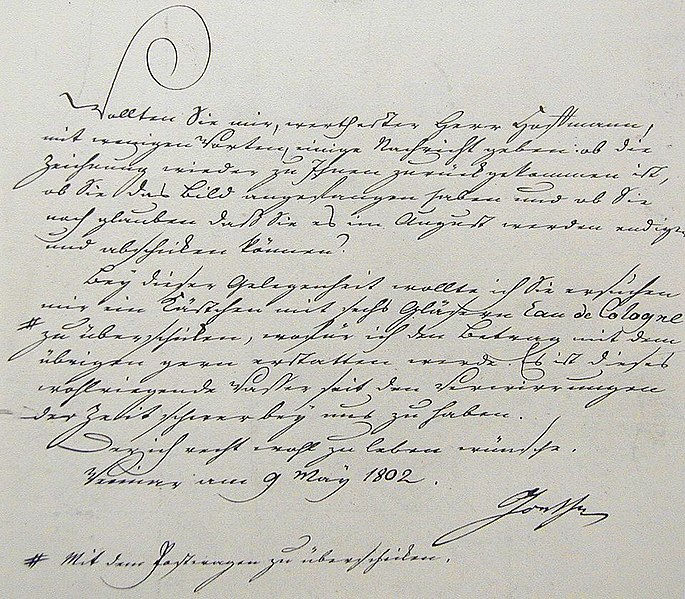 Wollten Sie mir, werthester Herr Hoffmann,
mit wenigen Worten, einige Nachricht geben: ob die
Zeichnung wieder zu Ihnen zurückgekommen ist,
ob Sie das Bild angefangen haben und ob Sie
noch glauben daß Sie es im August werden endigen
und abschicken können?
Bey dieser Gelegenheit wollte ich Sie ersuchen
mir ein Kästchen mit sechs Gläsern Eau de Cologne
# zu überschicken, wofür ich den Betrag mit dem
übrigen gern erstatten werde. Es ist dieses
wohlriegende Wasser seit den Verwirrungen
der Zeit schwer bey uns zu haben.
Der ich recht wohl zu leben wünsche.
Weimar am 9 May 1802.
Goethe
# Mit dem Postwagen zu überschicken.